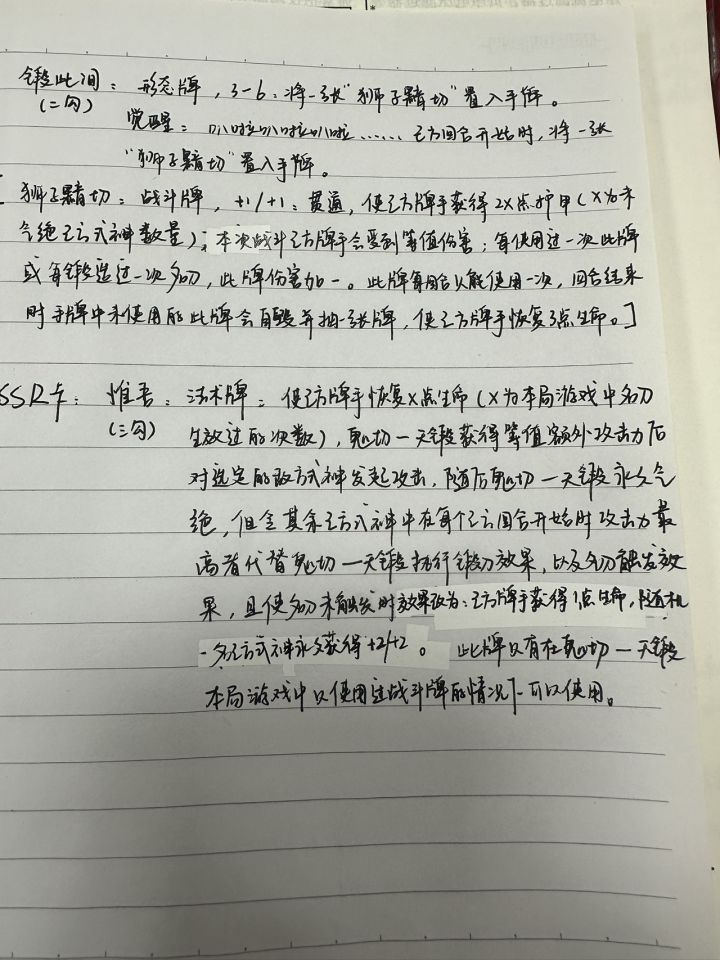 锻此间：形态牌，3-6：将一张“狮子霸切”置入手牌。
(二勾)
觉醒：叭啦叭啦叭啦……己方回合开始时，将一张
“狮子霸切”置入手牌。
狮子霸切：战斗牌，+1/+1：贯通，使己方牌手获得2X点护甲(X为未
气绝己方式神数量)；本次战斗己方牌手会受到等值伤害；每使用过一次此牌
或每锻造过一次名刀，此牌伤害加一。此牌每回合只能使用一次，回合结束
时手牌中未使用的此牌会自毁并抽一张牌，使己方牌手恢复3点生命。]
SSR卡：惟吾：法术牌：使己方牌手恢复X点生命(X为本局游戏中名刀
(三勾)
生效过的次数)，鬼切一天锻获得等值额外攻击力后
对选定的敌方式神发起攻击，随后鬼切一天锻永久气
绝，但令其余己方式神中在每个己方回合开始时攻击力最
高者代替鬼切一天锻执行锻刀效果，以及名刀触发效
果，且使名刀未触发时效果改为：己方牌手获得1点生命，随机
一名己方式神永久获得+2/+2。此牌只有在鬼切一天锻
本局游戏中只使用过战斗牌的情况下可以使用。